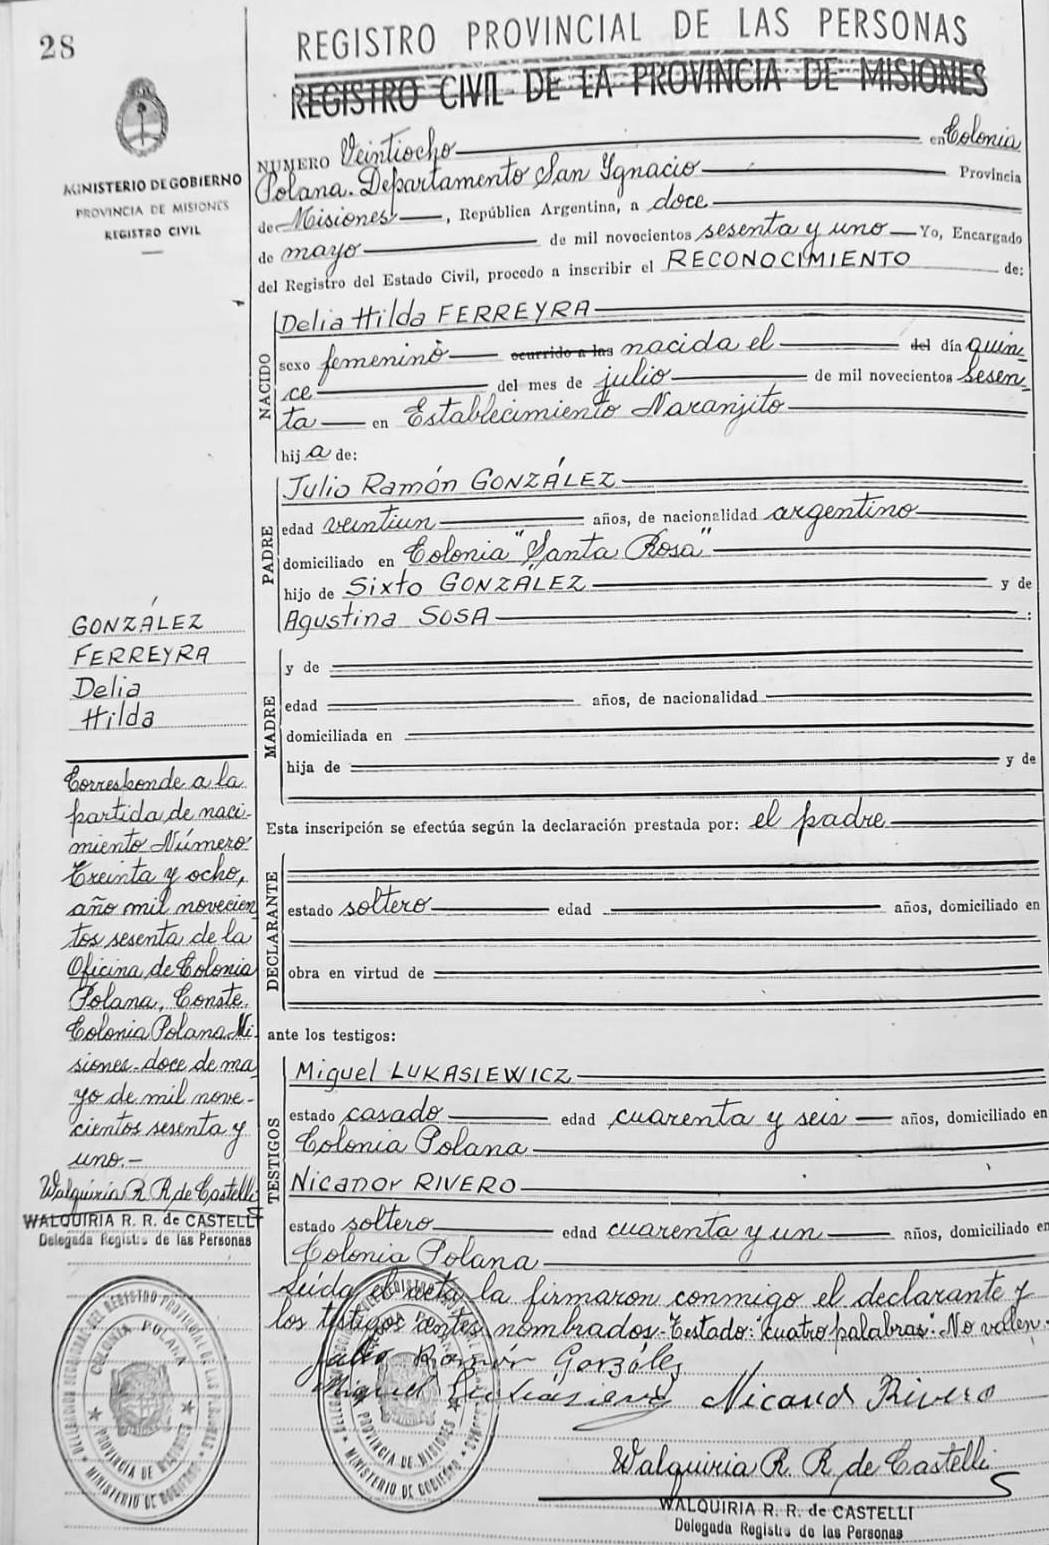 28
REGISTRO PROVINCIAL DE LAS PERSONAS
REGISTRO CIVIL DE LA PROVINCIA DE MISIONES
MINISTERIO DE GOBIERNO
PROVINCIA DE MISIONES
REGISTRO CIVIL
NUMERO Veintiocho en Colonia
Polana. Departamento San Ygnacio Provincia
de Misiones, República Argentina, a doce
de mayo de mil novecientos sesenta y uno Yo, Encargado
del Registro del Estado Civil, procedo a inscribir el RECONOCIMIENTO de:
NACIDO
Delia Hilda FERREYRA
sexo femenino ocurrido a las nacida el del día quin-
ce del mes de julio de mil novecientos sesen-
ta en Establecimiento Naranjito
hija de:
PADRE
Julio Ramón GONZÁLEZ
edad veintiun años, de nacionalidad argentino
domiciliado en Colonia "Santa Rosa"
hijo de Sixto GONZÁLEZ y de
Agustina SOSA :
MADRE
y de
edad años, de nacionalidad
domiciliada en
hija de y de
Esta inscripción se efectúa según la declaración prestada por: el padre
DECLARANTE
estado soltero edad años, domiciliado en
obra en virtud de
ante los testigos:
TESTIGOS
Miguel LUKASIEWICZ
estado casado edad cuarenta y seis años, domiciliado en
Colonia Polana
Nicanor RIVERO
estado soltero edad cuarenta y un años, domiciliado en
Colonia Polana
Leída el acta la firmaron conmigo el declarante y
los testigos antes nombrados.- Testado: "cuatro palabras". No valen.-
Julio Ramón González
Miguel
Nicanor Rivero
Walquiria R. R. de Castelli
WALQUIRIA R. R. de CASTELLI
Delegada Registro de las Personas
GONZÁLEZ
FERREYRA
Delia
Hilda
Corresponde a la
partida de naci-
miento Número
Treinta y ocho,
año mil novecien
tos sesenta de la
Oficina de Colonia
Polana, Conste.
Colonia Polana Mi-
siones- doce de ma
yo de mil nove-
cientos sesenta y
uno.-
Walquiria R. R. de Castelli
WALQUIRIA R. R. de CASTELLI
Delegada Registro de las Personas
COLONIA POLANA
PROVINCIA DE MISIONES
MINISTERIO DE GOBIERNO
PROVINCIA DE MISIONES
MINISTERIO DE GOBIERNO